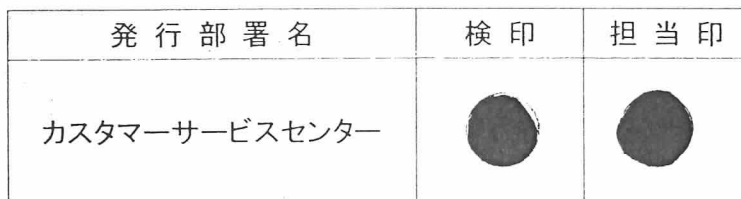 発行部署名 検印 担当印
カスタマーサービスセンター